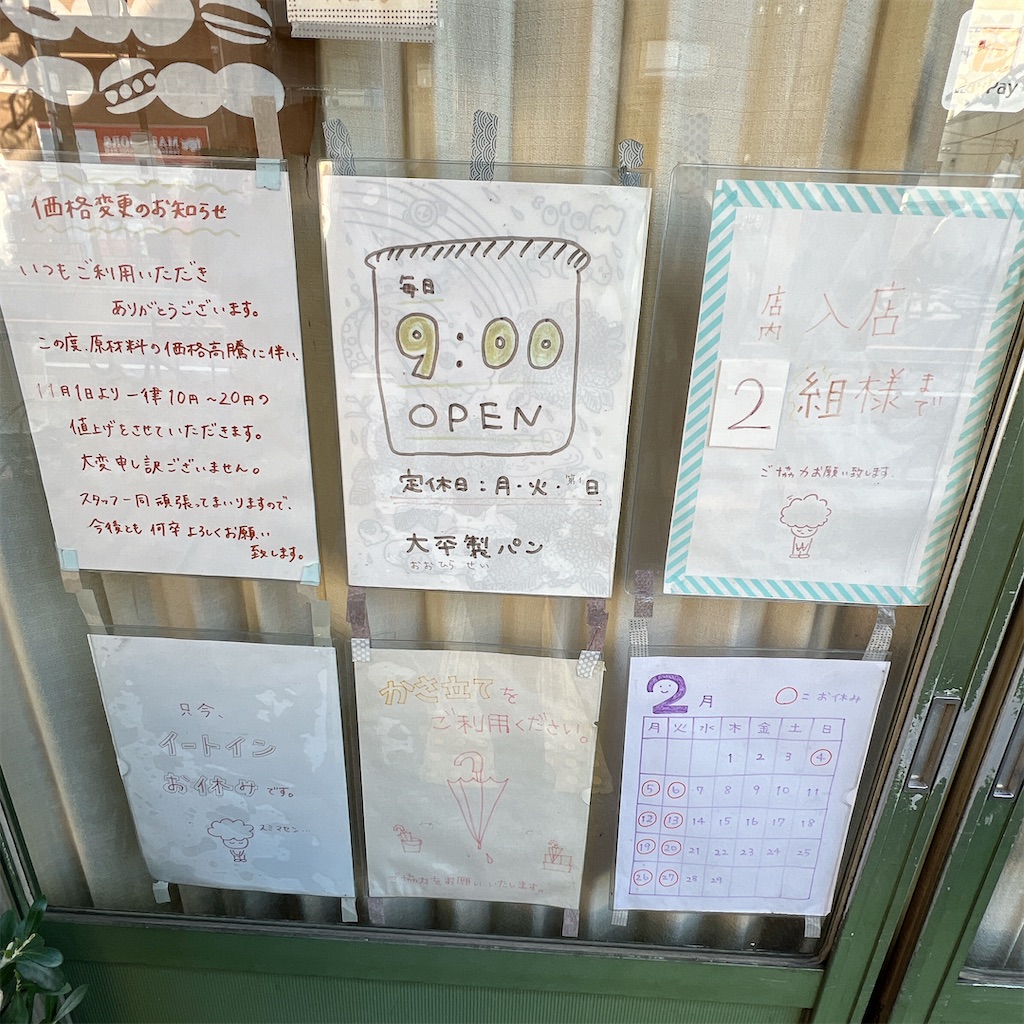 価格変更のお知らせ
いつもご利用いただき
ありがとうございます。
この度、原材料の価格高騰に伴い、
11月1日より一律10円~20円の
値上げをさせていただきます。
大変申し訳ございません。
スタッフ一同頑張ってまいりますので、
今後とも何卒よろしくお願い
致します。
毎日
9:00
OPEN
定休日:月・火・第1日
大平製パン
おおひら せい
店内 入店
2組様まで
ご協力お願い致します
PayPay
只今、
イートイン
お休みです。
スミマセン…
かさ立てを
ご利用ください。
ご協力をお願いいたします。
2月 ○=お休み
月 火 水 木 金 土 日
1 2 3 4
5 6 7 8 9 10 11
12 13 14 15 16 17 18
19 20 21 22 23 24 25
26 27 28 29